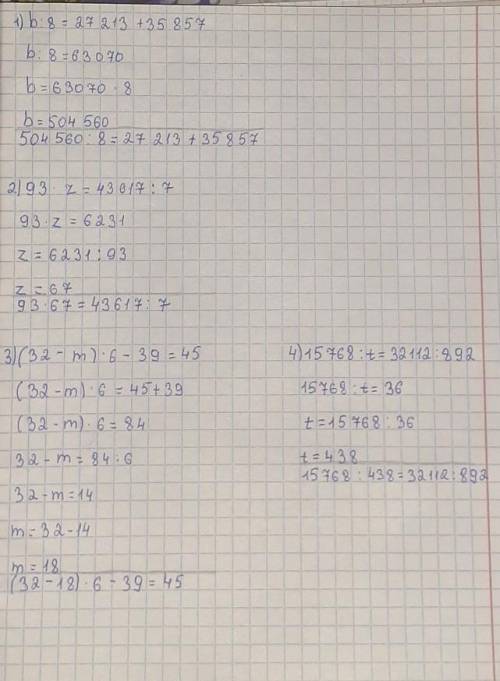 1) b : 8 = 27 213 + 35 857
b : 8 = 63070
b = 63070 · 8
b = 504 560
504 560 : 8 = 27 213 + 35 857
2) 93 · z = 43617 : 7
93 · z = 6231
z = 6231 : 93
z = 67
93 · 67 = 43617 : 7
3) (32 - m) · 6 - 39 = 45
(32 - m) · 6 = 45 + 39
(32 - m) · 6 = 84
32 - m = 84 : 6
32 - m = 14
m = 32 - 14
m = 18
(32 - 18) · 6 - 39 = 45
4) 15 768 : t = 32112 : 892
15768 : t = 36
t = 15 768 : 36
t = 438
15768 : 438 = 32112 : 892